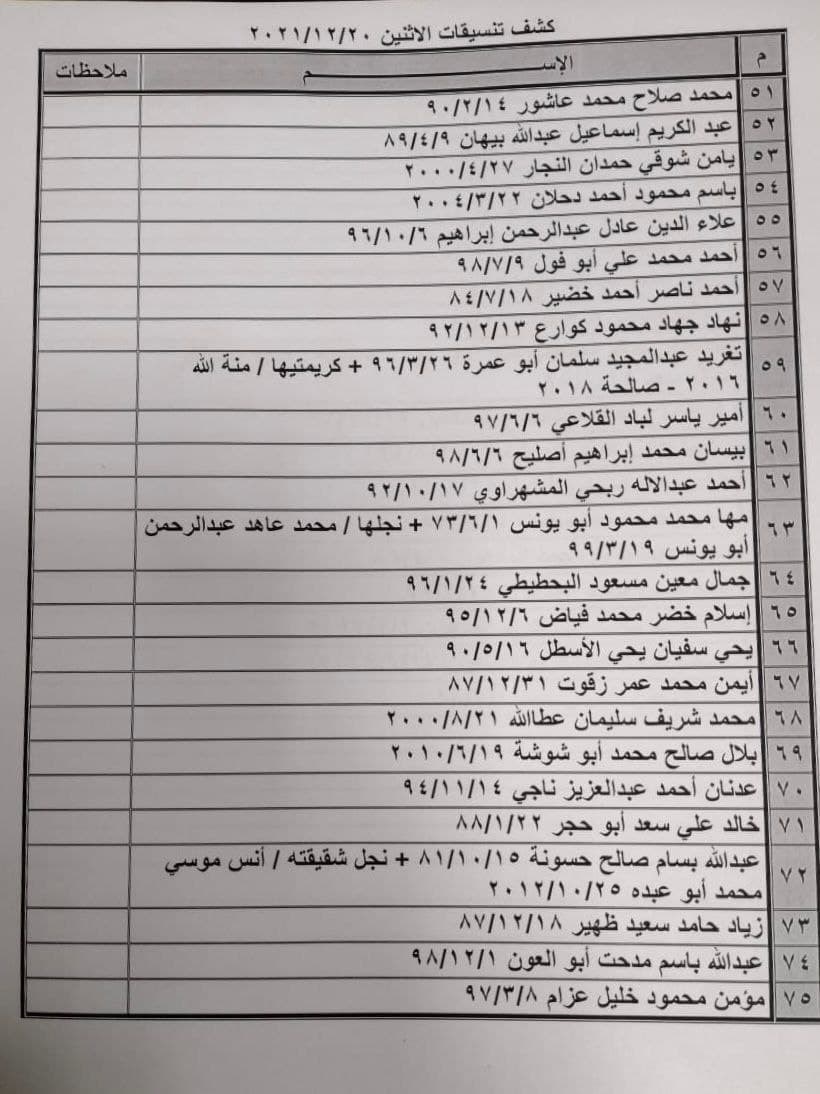 كشف تنسيقات الاثنين ٢٠٢١/١٢/٢٠
م الإســـــــــم ملاحظات
٥١ محمد صلاح محمد عاشور ٩٠/٢/١٤
٥٢ عبد الكريم إسماعيل عبدالله بيهان ٨٩/٤/٩
٥٣ يامن شوقي حمدان النجار ٢٠٠٠/٤/٢٧
٥٤ باسم محمود أحمد دحلان ٢٠٠٤/٣/٢٢
٥٥ علاء الدين عادل عبدالرحمن إبراهيم ٩٦/١٠/٦
٥٦ أحمد محمد علي أبو فول ٩٨/٧/٩
٥٧ أحمد ناصر أحمد خضير ٨٤/٧/١٨
٥٨ نهاد جهاد محمود كوارع ٩٢/١٢/١٣
٥٩ تغريد عبدالمجيد سلمان أبو عمرة ٩٦/٣/٢٦ + كريمتيها / منة الله
٢٠١٦ - صالحة ٢٠١٨
٦٠ أمير ياسر لباد القلاعي ٩٧/٦/٦
٦١ بيسان محمد إبراهيم أصليح ٩٨/٦/٦
٦٢ أحمد عبدالاله ربحي المشهراوي ٩٢/١٠/١٧
٦٣ مها محمد محمود أبو يونس ٧٣/٦/١ + نجلها / محمد عاهد عبدالرحمن
أبو يونس ٩٩/٣/١٩
٦٤ جمال معين مسعود البحطيطي ٩٦/١/٢٤
٦٥ إسلام خضر محمد فياض ٩٥/١٢/٦
٦٦ يحي سفيان يحي الأسطل ٩٠/٥/١٦
٦٧ أيمن محمد عمر زقوت ٨٧/١٢/٣١
٦٨ محمد شريف سليمان عطاالله ٢٠٠٠/٨/٢١
٦٩ بلال صالح محمد أبو شوشة ٢٠١٠/٦/١٩
٧٠ عدنان أحمد عبدالعزيز ناجي ٩٤/١١/١٤
٧١ خالد علي سعد أبو حجر ٨٨/١/٢٢
٧٢ عبدالله بسام صالح حسونة ٨١/١٠/١٥ + نجل شقيقته / أنس موسي
محمد أبو عبده ٢٠١٢/١٠/٢٥
٧٣ زياد حامد سعيد ظهير ٨٧/١٢/١٨
٧٤ عبدالله باسم مدحت أبو العون ٩٨/١٢/١
٧٥ مؤمن محمود خليل عزام ٩٧/٣/٨